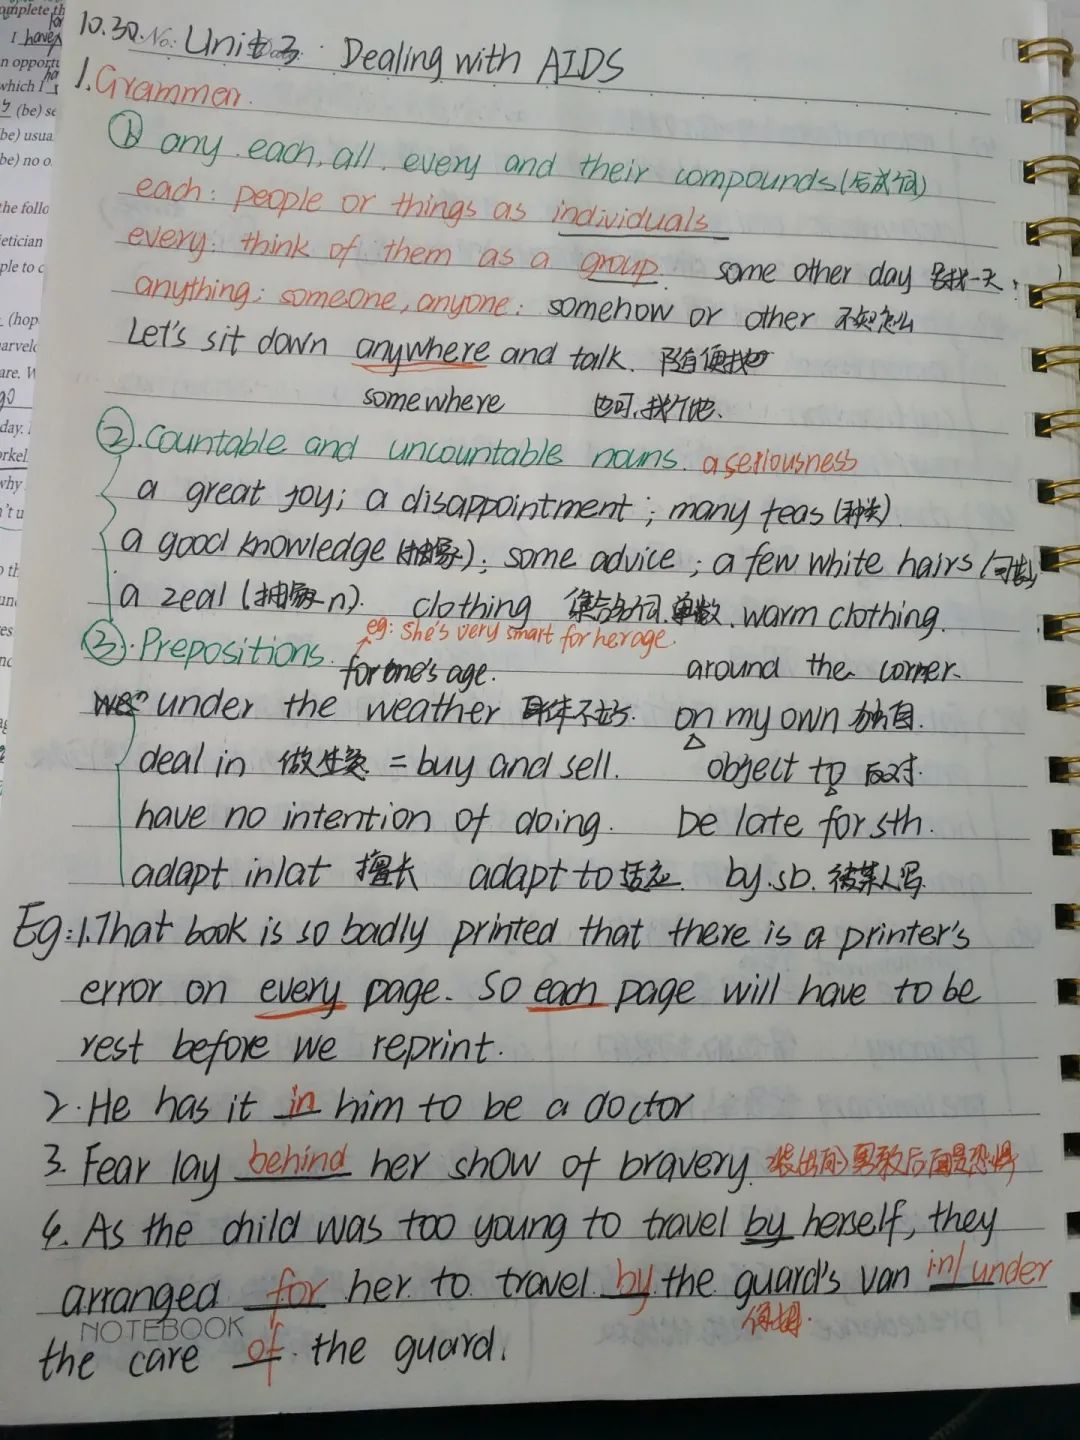 omplete th
for
I have
n opportu
ha
which I
(be) se
be) usua
be) no o
the follo
ietician
ple to c
(hop
arvelo
are. W
go
day. I
orkel
why
n't u
10.30. No: Unit 3 Dealing with AIDS
1. Grammer.
① any. each, all. every and their compounds (后成词)
each: people or things as individuals
every: think of them as a group. some other day 另找一天
anything; someone, anyone: somehow or other 不知怎么
Let's sit down anywhere and talk. 随便找
somewhere 也可,找个地.
②.Countable and uncountable nouns. a seriousness
a great joy; a disappointment; many teas (种类).
a good knowledge (抽象); some advice; a few white hairs
a zeal (抽象n). clothing 集合名词.单数. warm clothing.
eg: She's very smart for her age.
③. Prepositions. for one's age. around the corner.
under the weather 身体不好. on my own 独自.
deal in 做生意 = buy and sell. object to 反对.
have no intention of doing. be late for sth.
adapt in/at 擅长 adapt to 适应 by.sb. 被某人写
Eg:1.That book is so badly printed that there is a printer's
error on every page. So each page will have to be
rest before we reprint.
2. He has it in him to be a doctor
3. Fear lay behind her show of bravery. (装出的)勇敢后面是恐惧
4. As the child was too young to travel by herself, they
arranged for her to travel by the guard's van in/under
保姆.
NOTEBOOK
the care of the guard.